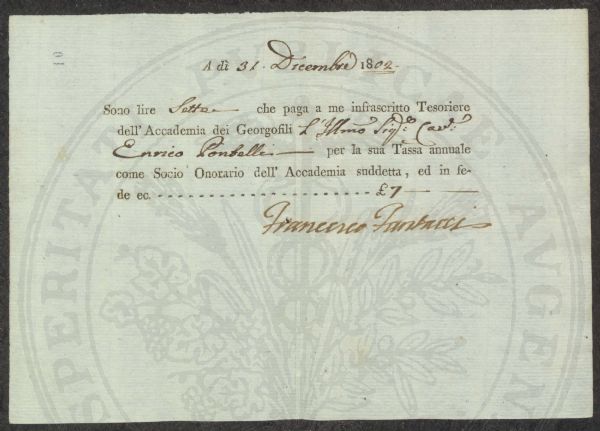 10
A dì 31. Dicembre 1802.
Sono lire Sette che paga a me infrascritto Tesoriere
dell'Accademia dei Georgofili L'Illmo Sigr. Cav.
Enrico per la sua Tassa annuale
come Socio Onorario dell' Accademia suddetta, ed in fe-
de ec. - - - - - - - - - - - - - - - - - - - - - - £ 7
Francesco
PROSPERITATI PUBLICAE AUGENDAE